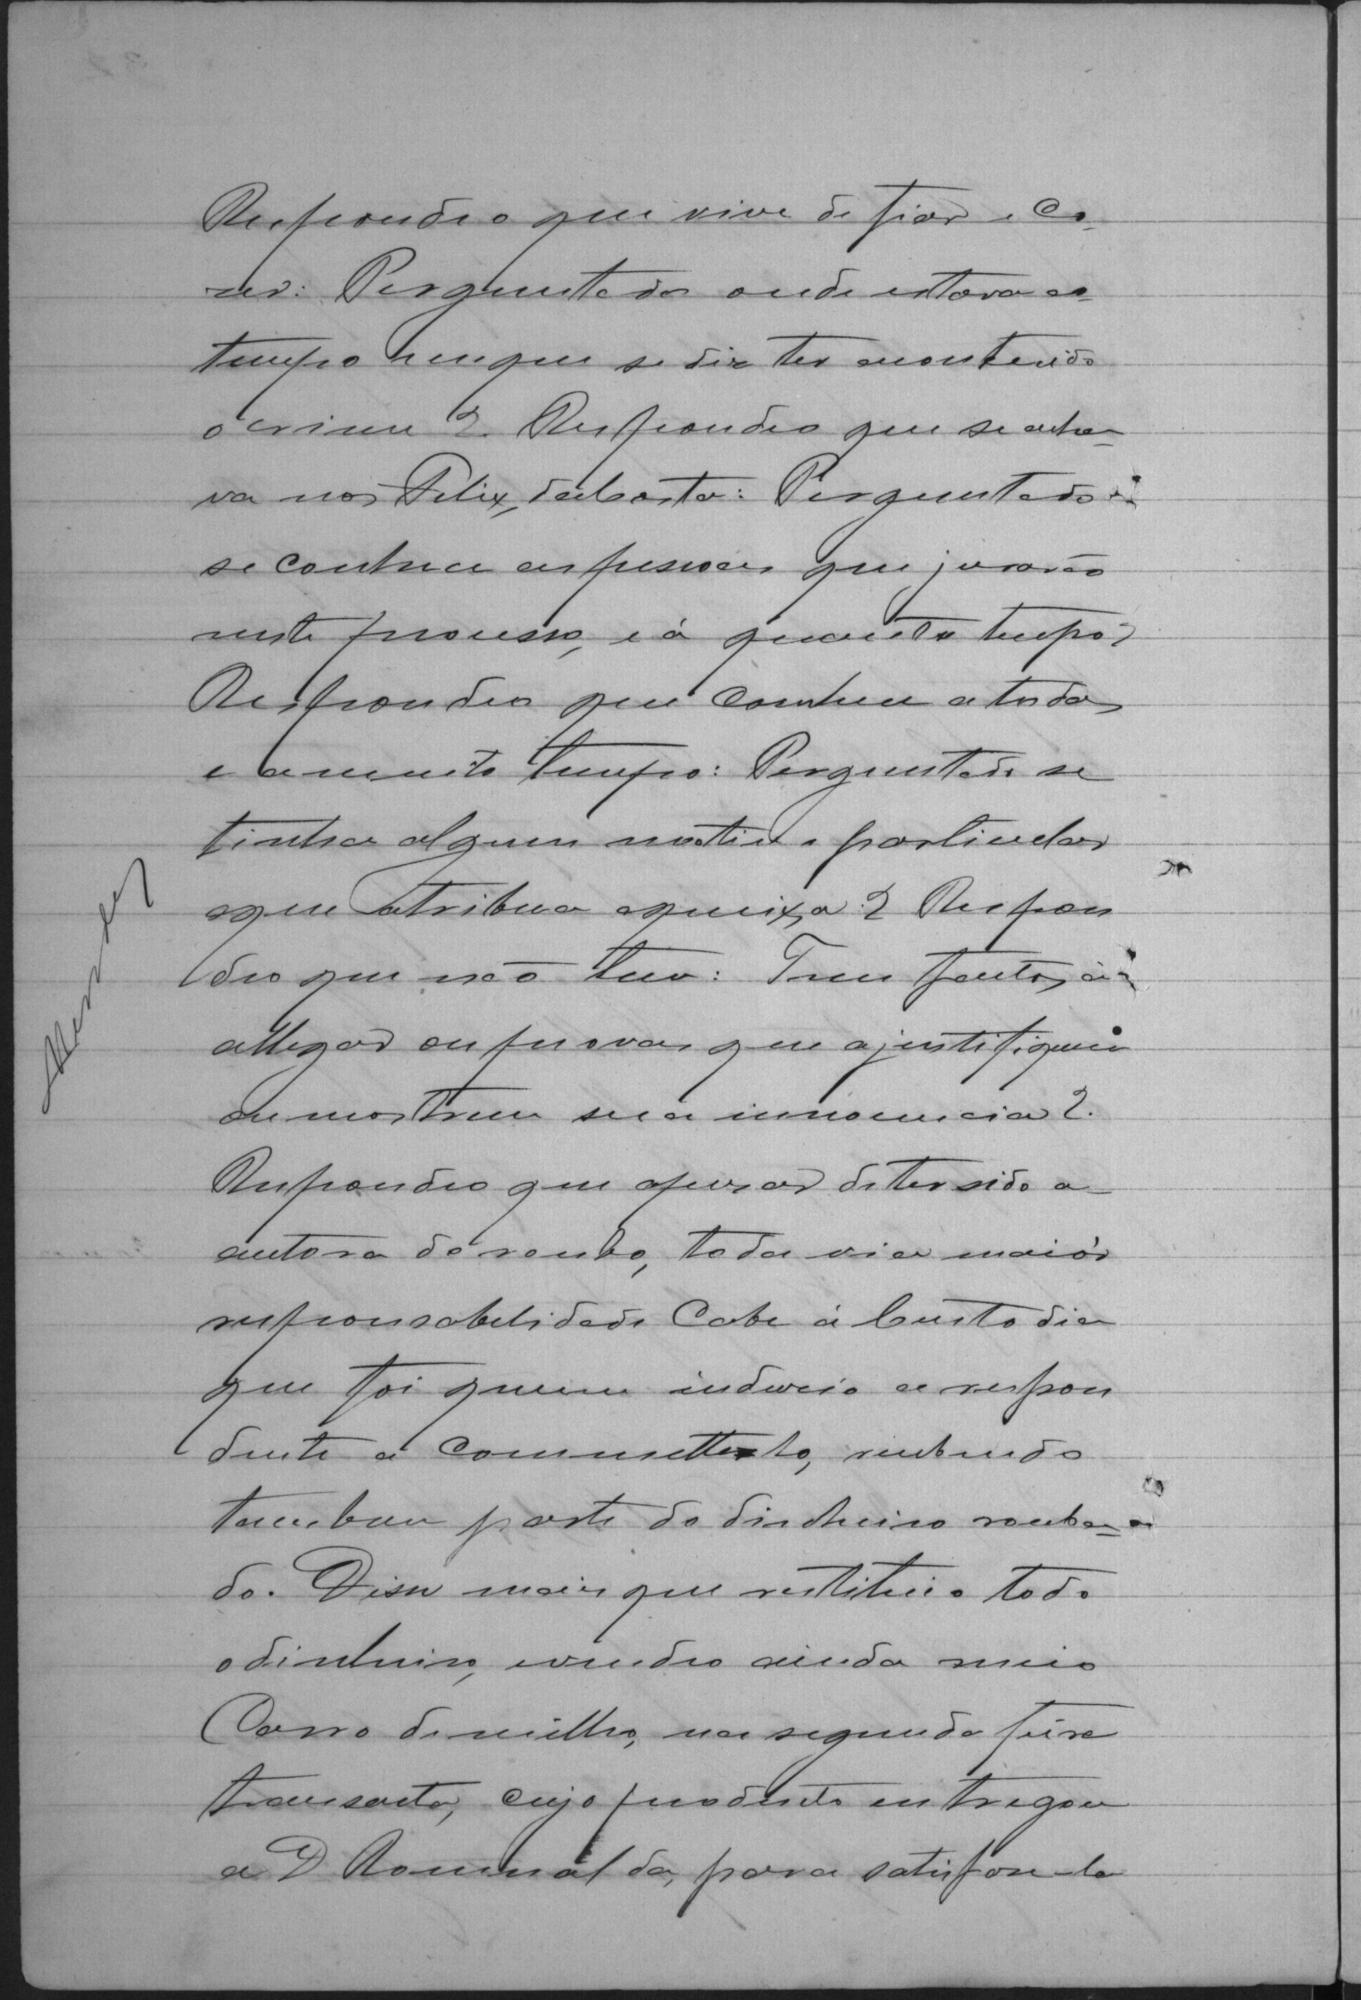 Respondeo que vive de fiar e co-
ser: Perguntado onde estava ao
tempo em que se diz ter acontecido
o crime? Respondeo que se acha-
va nos Felix da Costa: Perguntado
se conhece as pessoas que jurarão
neste processo, e á quanto tempo?
Respondeo que conhece a todas
e a muito tempo: Perguntado se
tinha algum motivo particular
a que atribua a queixa? Respon
deo que não teve: Tem factos á
allegar ou provas que a justifiquem
ou mostrem sua innocencia?
Respondeo que apezar de ter sido a
autora do roubo, toda via maiór
responsabelidade cabe á Custodia
que foi quem induzio a respon
dente a commetter-lo, recebendo
tambem parte do dinheiro rouba-
do. Disse mais que restituio todo
o dinheiro, vendeo ainda meio
Carro de milho, na segunda feira
transacta, cujo producto entregou
a D Romualda, para satisfaze-la